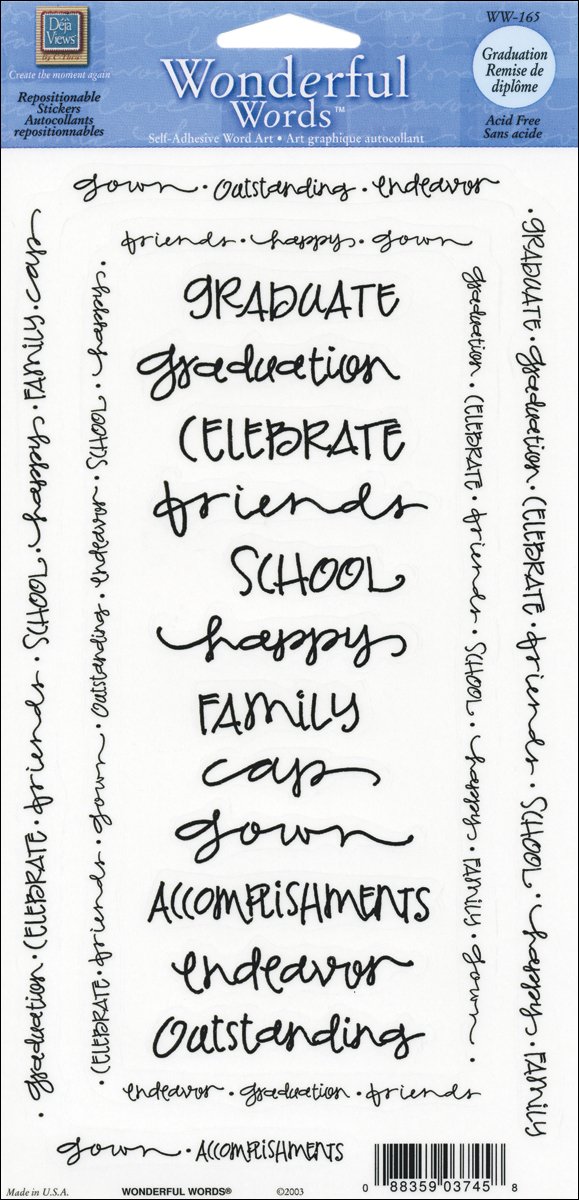 Déjà Views
by C-Thru
Create the moment again
Repositionable
Stickers
Autocollants
repositionnables
Wonderful
Words™
Self-Adhesive Word Art • Art graphique autocollant
WW-165
Graduation
Remise de
diplôme
Acid Free
Sans acide
gown · Outstanding · endeavor
friends · happy · gown
graduation · CELEBRATE · friends · SCHOOL · happy · FAMILY · cap
CELEBRATE · friends · gown · Outstanding · endeavor · SCHOOL · happy ·
GRADUATE
graduation
CELEBRATE
friends
SCHOOL
happy
FAMILY
cap
gown
ACCOMPLISHMENTS
endeavor
Outstanding
graduation · CELEBRATE · friends · SCHOOL · happy · FAMILY · gown ·
· GRADUATE · graduation · CELEBRATE · friends · SCHOOL · happy · FAMILY
endeavor · graduation · friends
gown · ACCOMPLISHMENTS
Made in U.S.A.
WONDERFUL WORDS®
©2003
0 88359 03745 8